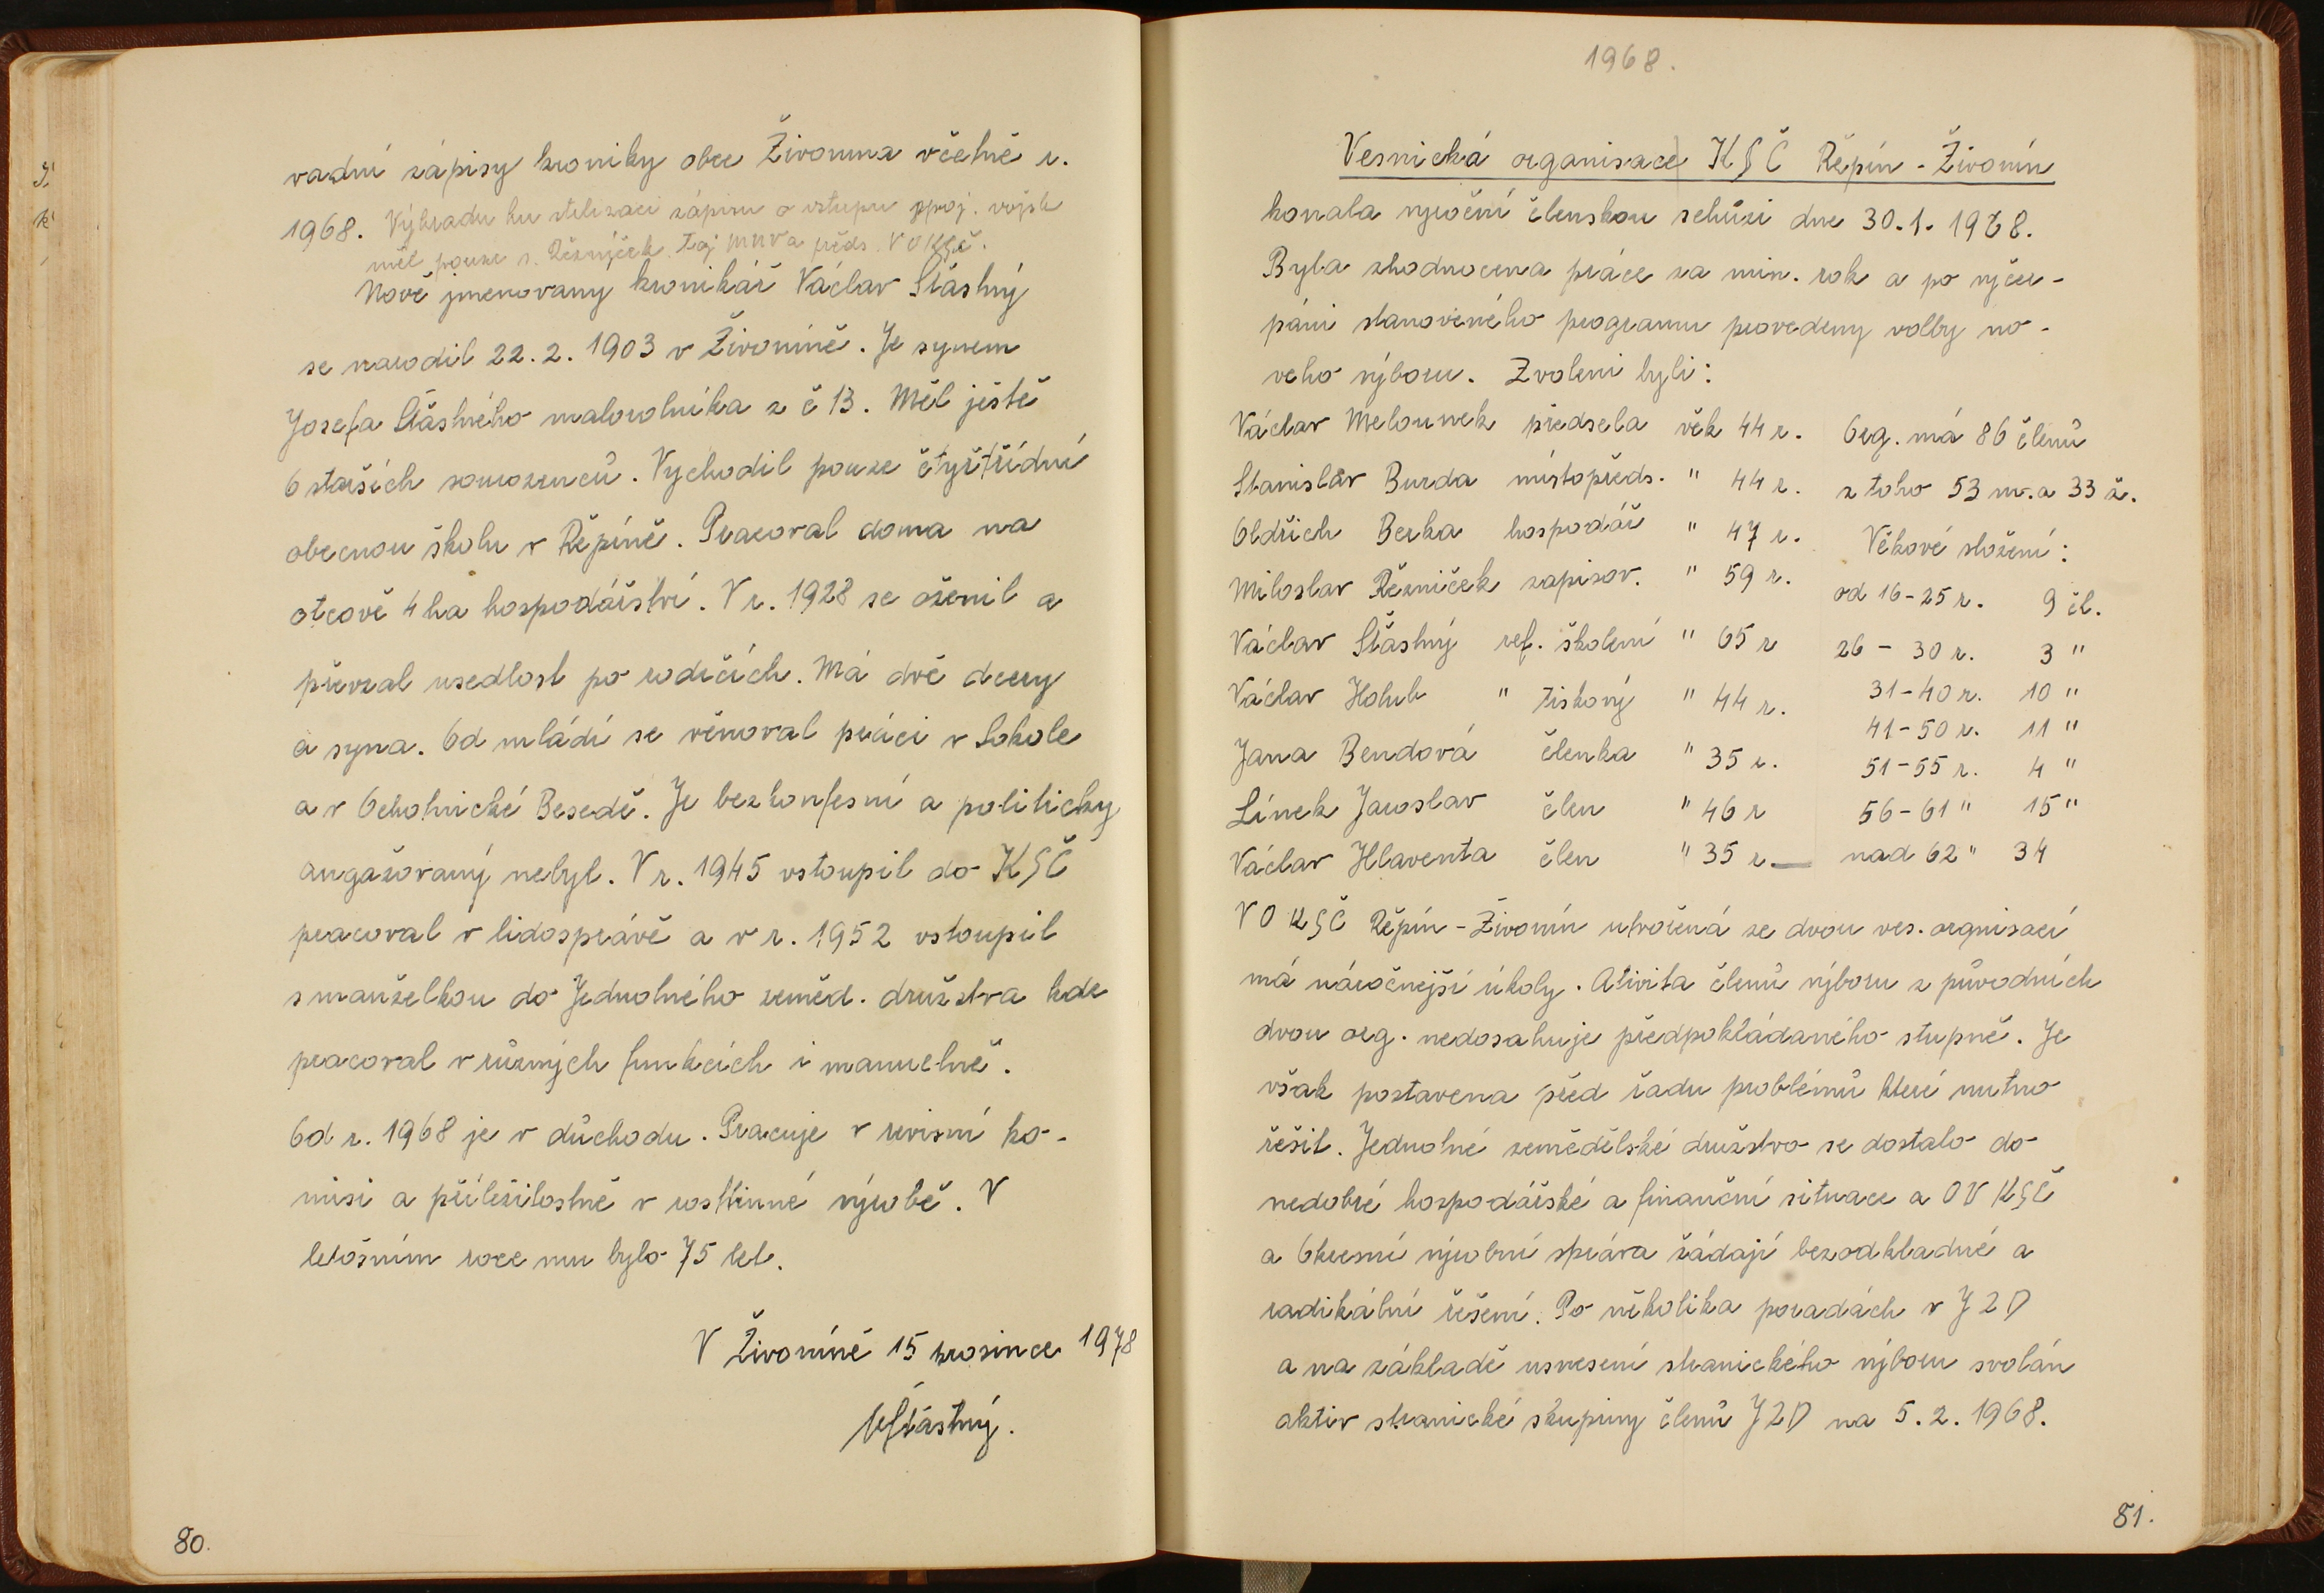 vadní zápisy kroniky obce Živonína včetně r.
1968. Výhradu ku stilizaci zápisu o vstupu spoj. vojsk
měl pouze s. Řezníček Taj MNV a předs. VOKSČ.
Nově jmenovaný kronikář Václav Šťástný
se narodil 22.2.1903 v Živoníně. Je synem
Josefa Šťástného malorolníka z č 13. Měl ještě
6 starších sourozenců. Vychodil pouze čtyřtřídní
obecnou školu v Řepíně. Pracoval doma na
otcově 4 ha hospodářství. V r. 1928 se oženil a
převzal usedlost po rodičích. Má dvě dcery
a syna. Od mládí se věnoval práci v Sokole
a v Ochotnické Besedě. Je bezkonfesní a politicky
angažovaný nebyl. V r. 1945 vstoupil do KSČ
pracoval v lidosprávě a v r. 1952 vstoupil
s manželkou do Jednotného zeměd. družstva kde
pracoval v různých funkcích i manuelně.
Od r. 1968 je v důchodu. Pracuje v revisní ko-
misi a příležitostně v rostlinné výrobě. V
letošním roce mu bylo 75 let.
V Živoníně 15 prosince 1978
VŠťástný.
80.
1968.
Vesnická organisace KSČ Řepín - Živonín
konala výroční členskou schůzi dne 30.1.1968.
Byla zhodnocena práce za min. rok a po vyčer-
pání stanoveného programu provedeny volby no-
vého výboru. Zvoleni byli:
Václav Melounek předseda věk 44 r. Org. má 86 členů
Stanislav Burda místopředs. " 44 r. z toho 53 m. a 33 ž.
Oldřich Berka hospodář " 47 r. Věkové složení:
Miloslav Řezníček zapisov. " 59 r. od 16-25 r. 9 čl.
Václav Šťástný ref. školení " 65 r 26 - 30 r. 3 "
Václav Holub " tiskový " 44 r. 31-40 r. 10 "
41-50 r. 11 "
Jana Bendová členka " 35 r. 51-55 r. 4 "
Línek Jaroslav člen " 46 r 56-61 " 15 "
Václav Hlaventa člen " 35 r — nad 62 " 34
VO KSČ Řepín - Živonín utvořená ze dvou ves. orgnisací
má náročnejší úkoly. Ativita členů výboru z původních
dvou org. nedosahuje předpokládaného stupně. Je
však postavena před řadu problémů které nutno
řešit. Jednotné zemědělské družstvo se dostalo do
nedobré hospodářské a finanční situace a OV KSČ
a Okresní výrobní správa žádají bezodkladné a
radikální řešení. Po několika poradách v JZD
a na základě usnesení stranického výboru svolán
aktiv stranické skupiny členů JZD na 5.2.1968.
81.